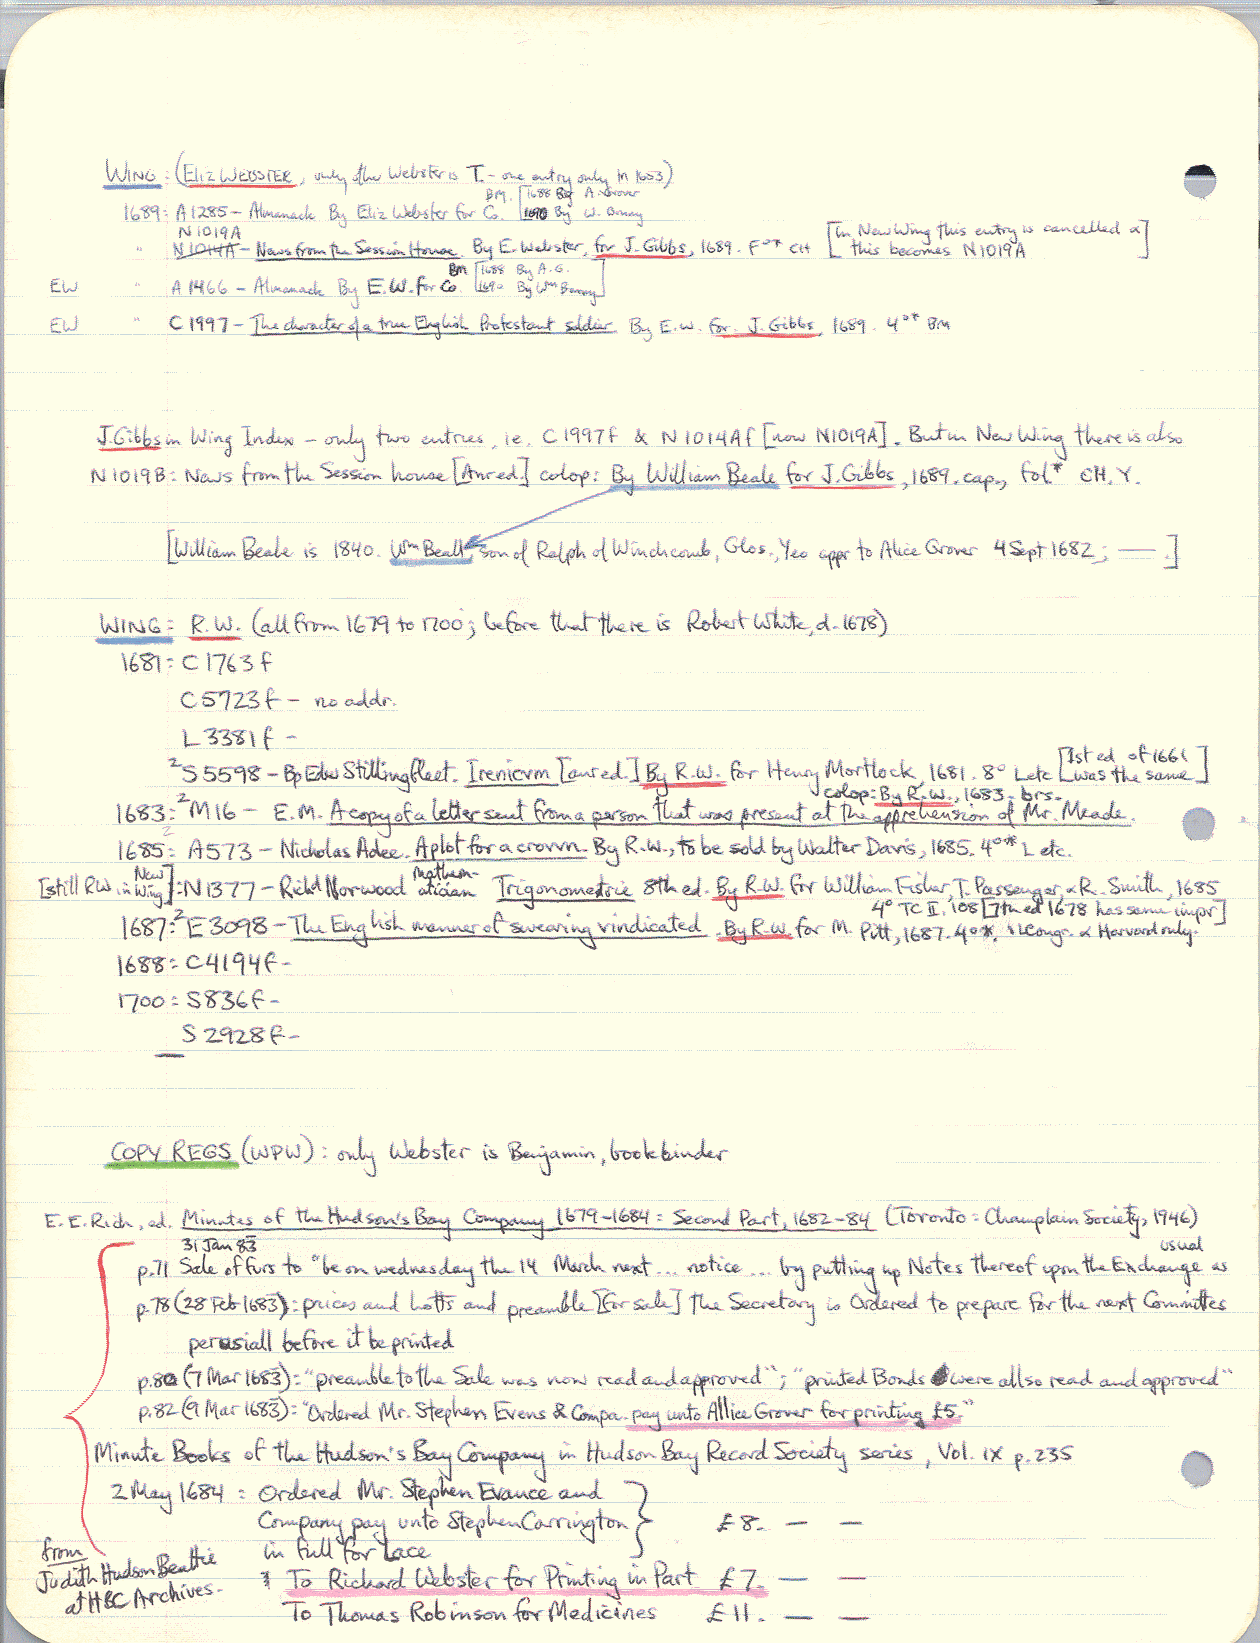 WING: (ELIZ WEBSTER, only other Webster is T. - one entry only in 1653)
BM. [1688 By A. Grover
1689: A1285 - Almanack By Eliz Webster for Co. 1690 By W. Bonny
N1019A
" N1014A - News from the Session House. By E. Webster, for J. Gibbs, 1689. F°* CH [in New Wing this entry is cancelled & this becomes N1019A]
BM [1688 By A.G.
EW " A1466 - Almanack By E.W. for Co. 1690 By Wm Bonny]
EW " C1997 - The character of a true English Protestant soldier. By E.W. for J. Gibbs, 1689. 4°* BM
J. Gibbs in Wing Index - only two entries, ie. C1997f & N1014Af [now N1019A]. But in New Wing there is also
N1019B: News from the Session house [Anr ed.] colop: By William Beale for J. Gibbs, 1689. cap., fol.* CH. Y.
[William Beale is 1840. Wm Beall, son of Ralph of Winchcomb, Glos., Yeo appr to Alice Grover 4 Sept 1682; — .]
WING: R.W. (all from 1679 to 1700; before that there is Robert White, d. 1678)
1681: C1763f
C5723f - no addr.
L3381f -
2S5598 - Bp Edw Stillingfleet. Irenicum [anr ed.] By R.W. for Henry Mortlock, 1681. 8° L etc [1st ed of 1661 was the same]
colop: By R.W., 1683. brs.
1683: 2M16 - E.M. A copy of a letter sent from a person that was present at the apprehension of Mr. Meade.
2
1685: A573 - Nicholas Adee. A plot for a crown. By R.W., to be sold by Walter Davis, 1685. 4°* L etc.
[still RW in New Wing]: N1377 - Richd Norwood mathematician Trigonometrie 8th ed. By R.W. for William Fisher, T. Passenger, & R. Smith, 1685
4° TC II. 108 [7th ed 1678 has same impr]
1687: 2E3098 - The English manner of swearing vindicated. By R.W. for M. Pitt, 1687. 4°*. LCongr. & Harvard only.
1688: C4194f -
1700: S836f -
S2928f -
COPY REGS (WPW): only Webster is Benjamin, bookbinder
E.E. Rich, ed. Minutes of the Hudson's Bay Company 1679-1684: Second Part, 1682-84 (Toronto: Champlain Society, 1946)
31 Jan 83 usual
p.71 Sale of furs to "be on wednesday the 14 March next ... notice ... by putting up Notes thereof upon the Exchange as
p.78 (28 Feb 1683): prices and lotts and preamble [for sale] the Secretary is Ordered to prepare for the next Committes
perusiall before it be printed
p.80 (7 Mar 1683): "preamble to the Sale was now read and approved"; "printed Bonds were allso read and approved"
p.82 (9 Mar 1683): "Ordered Mr. Stephen Evens & Compa. pay unto Allice Grover for printing £5."
Minute Books of the Hudson's Bay Company in Hudson Bay Record Society series, Vol. IX p.235
2 May 1684: Ordered Mr. Stephen Evance and
Company pay unto Stephen Carrington £8. — —
in full for Lace
To Richard Webster for Printing in Part £7. — —
To Thomas Robinson for Medicines £11. — —
from
Judith Hudson Beattie
at HBC Archives.